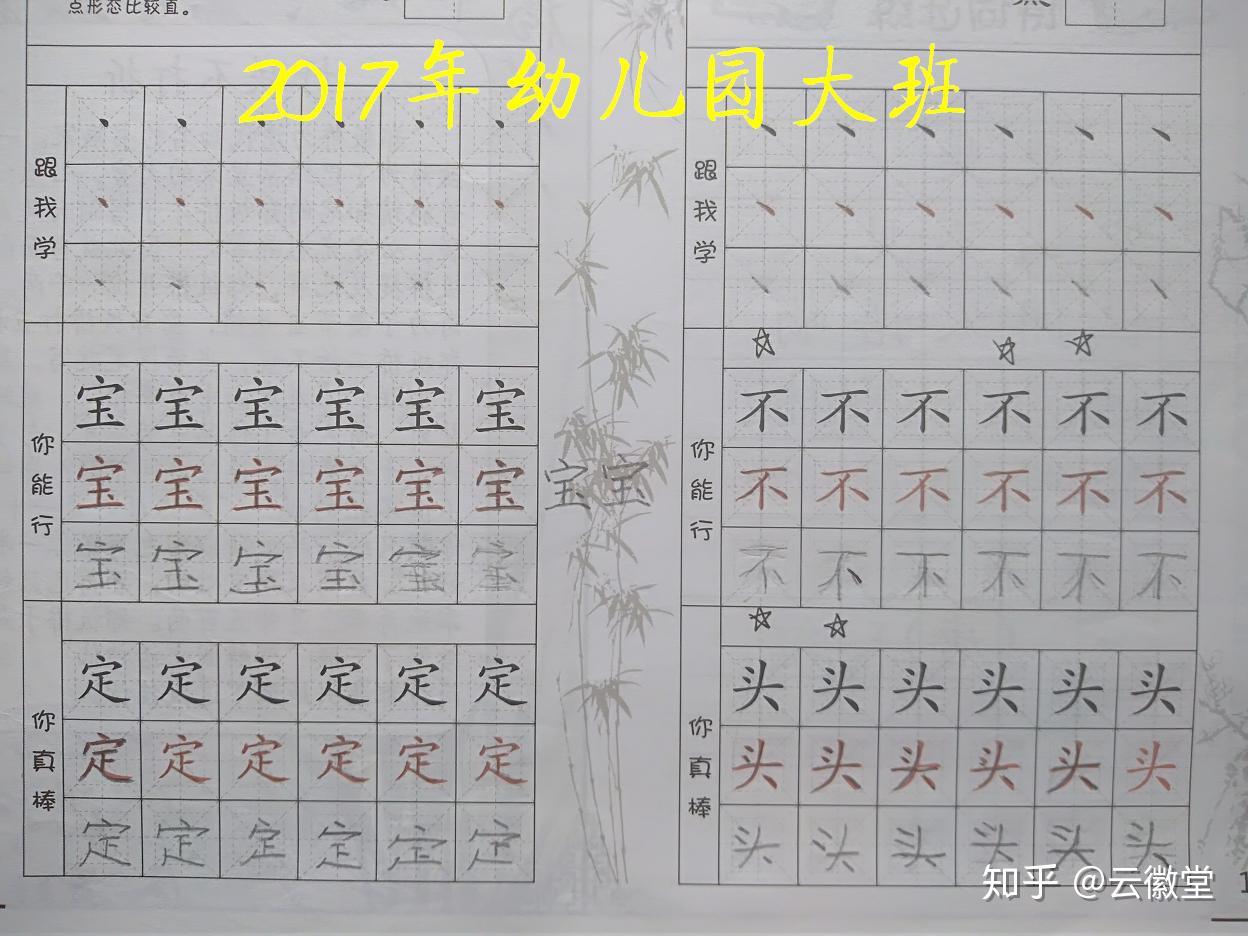 点形态比较直。
2017年幼儿园大班
跟我学
、 、 、 、 、 、
、 、 、 、 、 、
、 、 、 、 、 、
你能行
宝 宝 宝 宝 宝 宝
宝 宝 宝 宝 宝 宝 宝 宝
宝 宝 宝 宝 宝 宝
你真棒
定 定 定 定 定 定
定 定 定 定 定 定
定 定 定 定 定 定
跟我学
、 、 、 、 、 、
、 、 、 、 、 、
、 、 、 、 、 、
你能行
不 不 不 不 不 不
不 不 不 不 不 不
不 不 不 不 不 不
你真棒
头 头 头 头 头 头
头 头 头 头 头 头
头 头 头 头 头 头
知乎 @云徽堂